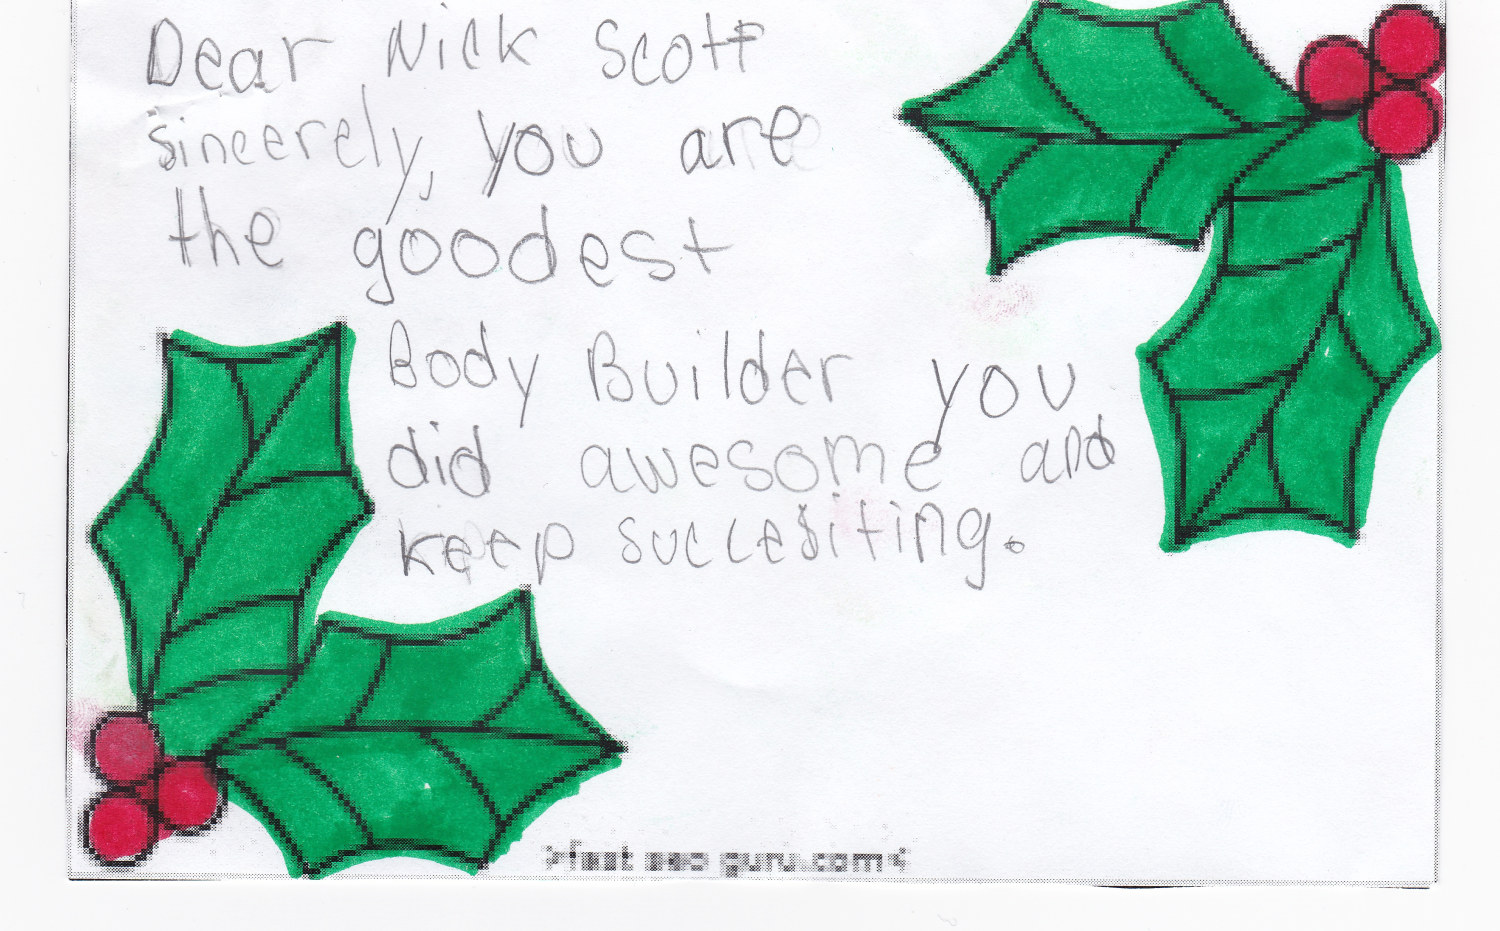 Dear Nick Scott
sincerely, you are
the goodest
Body Builder you
did awesome and
keep succesiting.
>fast seo guru.com<